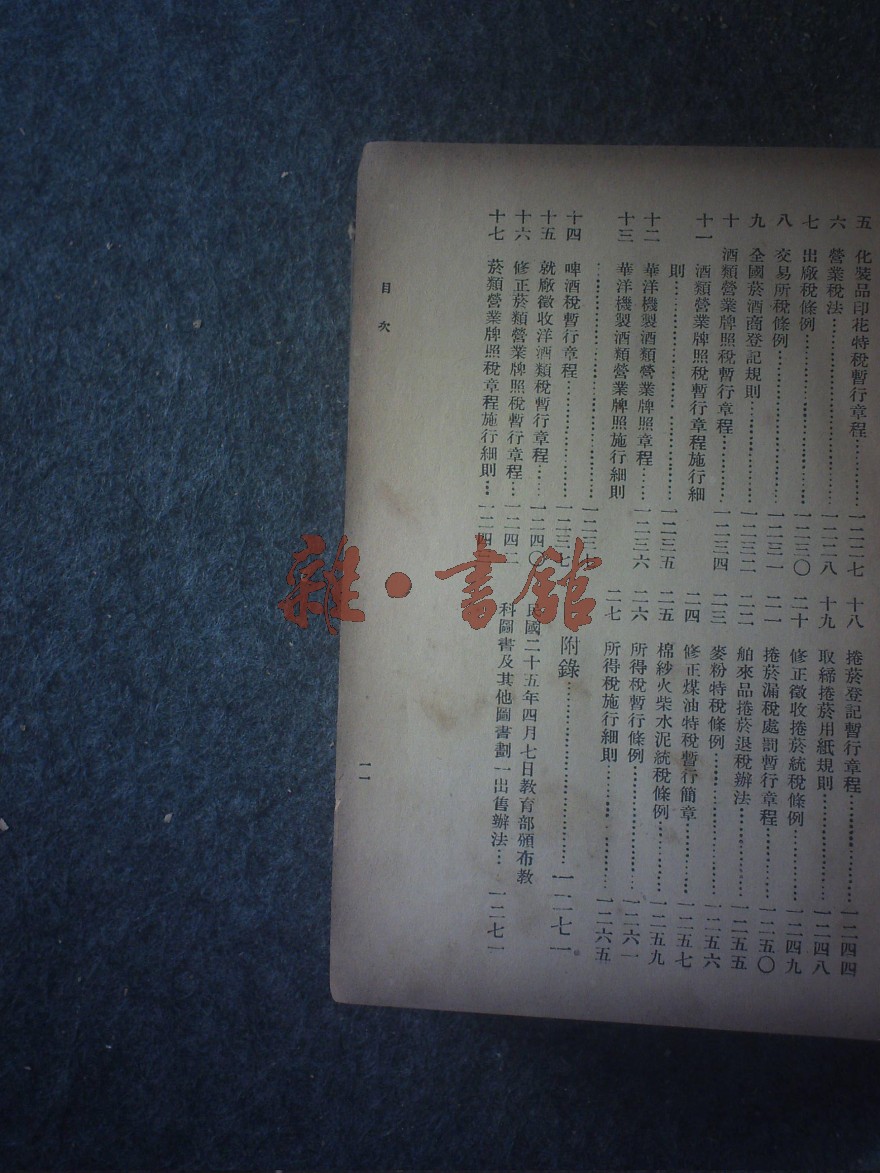 五 化裝品印花特稅暫行章程…………一二二七
六 營業稅法…………一二二八
七 出廠稅條例…………一二三〇
八 交易所稅條例…………一二三一
九 全國菸酒商登記規則…………一二三二
十 酒類營業牌照稅暫行章程…………一二三四
十一 酒類營業牌照稅暫行章程施行細
則…………一二三五
十二 華洋機製酒類營業牌照章程…………一二三六
十三 華洋機製酒類營業牌照施行細則
…………一二三七
十四 啤酒稅暫行章程…………一二三七
十五 就廠徵收洋酒類稅暫行章程……一二四〇
十六 修正菸類營業牌照稅暫行章程…一二四二
十七 菸類營業牌照稅章程施行細則…一二四
十八 捲菸登記暫行章程…………一二四四
十九 取締捲菸用紙規則…………一二四八
二十 修正徵收捲菸統稅條例…………一二四九
二一 捲菸漏稅處罰暫行章程…………一二五〇
二二 舶來品捲菸退稅辦法…………一二五五
二三 麥粉特稅條例…………一二五六
二四 修正煤油特稅暫行簡章…………一二五七
二五 棉紗火柴水泥統稅條例…………一二五九
二六 所得稅暫行條例…………一二六一
二七 所得稅施行細則…………一二六五
附錄…………一二七一
民國二十五年四月七日教育部頒布教
科圖書及其他圖書劃一出售辦法…一二七一
目次
一一
雜·書館